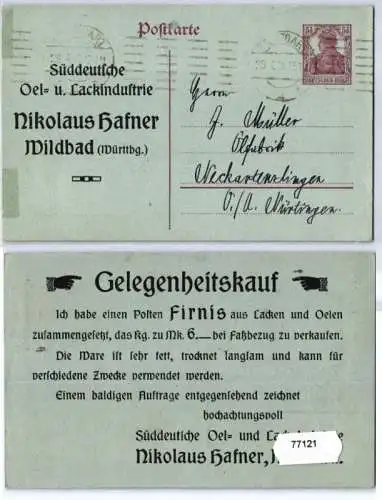 Postkarte
Süddeutsche
Oel- u. Lackindustrie
Nikolaus Hafner
Wildbad (Württbg.)
Herrn
J. Müller
Ölfabrik
Neckartenzlingen
O./A. Nürtingen.
Gelegenheitskauf
Ich habe einen Posten Firnis aus Lacken und Oelen
zusammengesetzt, das Kg. zu Mk. 6.— bei Faßbezug zu verkaufen.
Die Ware ist sehr fett, trocknet langsam und kann für
verschiedene Zwecke verwendet werden.
Einem baldigen Auftrage entgegensehend zeichnet
hochachtungsvoll
Süddeutsche Oel- und
Nikolaus Hafner,
77121